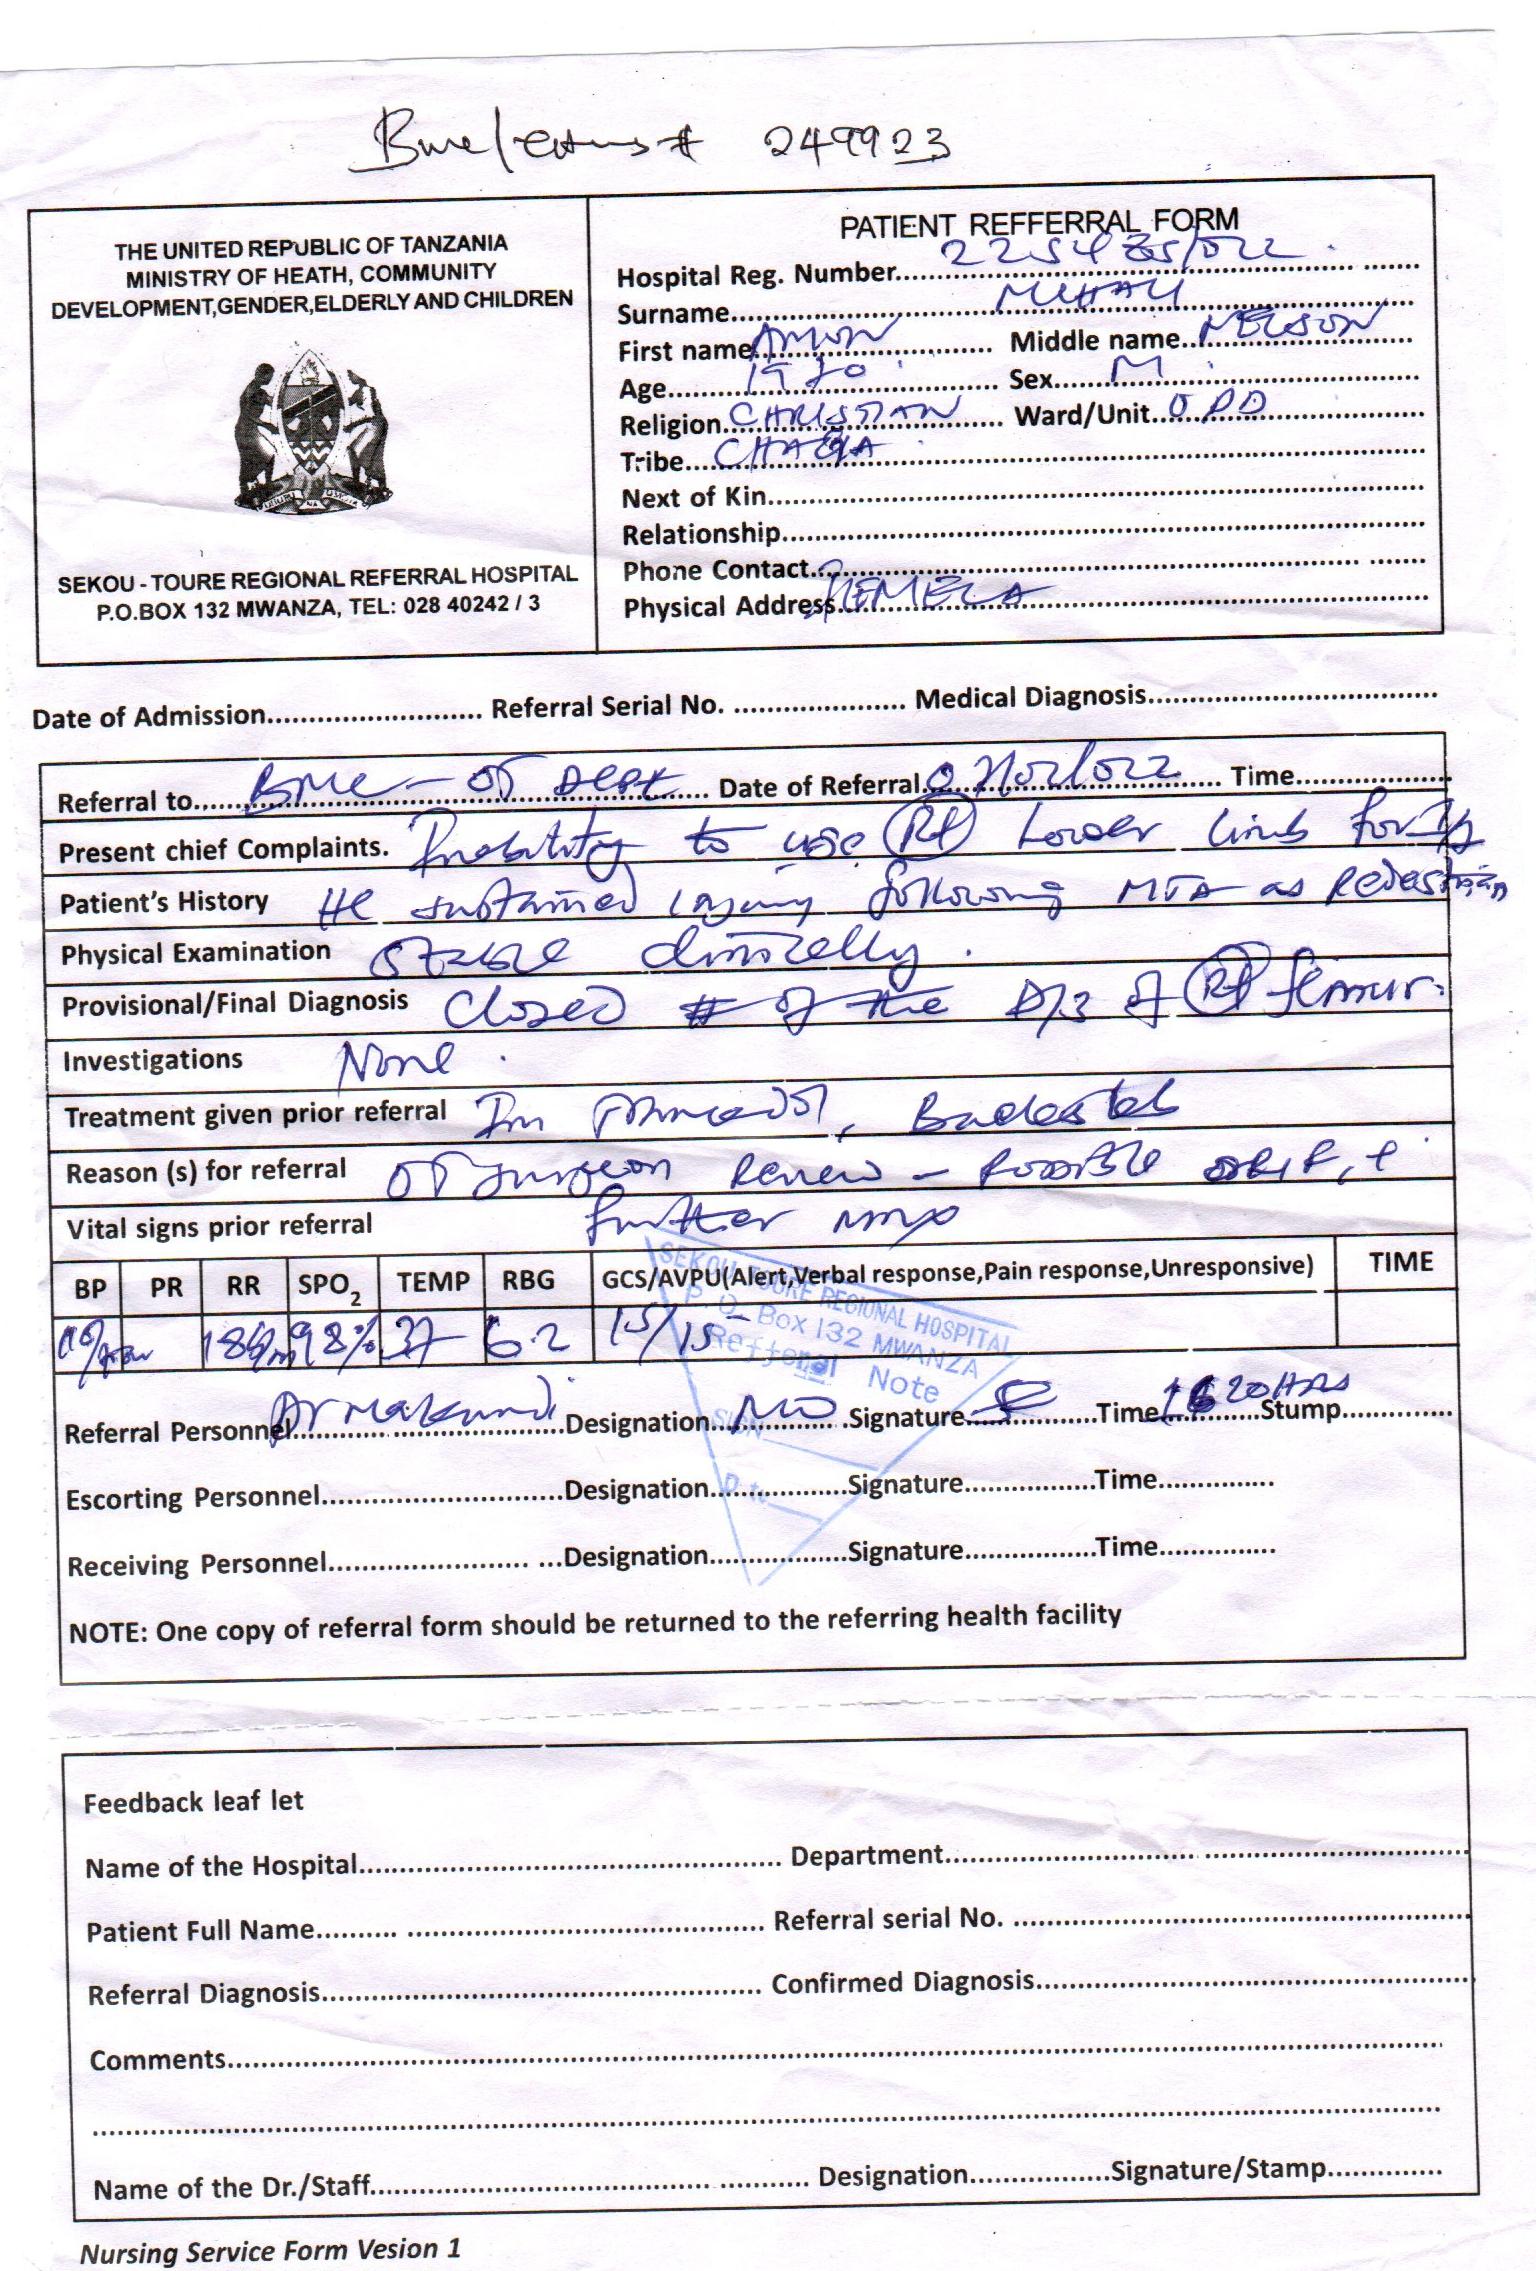 249923
THE UNITED REPUBLIC OF TANZANIA
MINISTRY OF HEATH, COMMUNITY
DEVELOPMENT,GENDER,ELDERLY AND CHILDREN
SEKOU - TOURE REGIONAL REFERRAL HOSPITAL
P.O.BOX 132 MWANZA, TEL: 028 40242 / 3
PATIENT REFFERRAL FORM
Hospital Reg. Number
Surname
First name AMON Middle name NELSON
Age Sex M
Religion CHRISTIAN Ward/Unit OPD
Tribe CHAGA
Next of Kin
Relationship
Phone Contact
Physical Address
Date of Admission Referral Serial No. Medical Diagnosis
Referral to BMC - OT Dept Date of Referral Time
Present chief Complaints. Inability to use Rt Lower limb for
Patient's History He sustained injury following MTA as pedestrian
Physical Examination stable clinically.
Provisional/Final Diagnosis Closed # of the D/3 of Rt femur.
Investigations None.
Treatment given prior referral Im Tramadol,
Reason (s) for referral OT surgeon Review - Possible ORIF, +
Vital signs prior referral further
BP PR RR SPO2 TEMP RBG GCS/AVPU(Alert,Verbal response,Pain response,Unresponsive) TIME
98% 37 6.2 15/15
SEKOU TOURE REGIONAL HOSPITAL
P. O. Box 132 MWANZA
Referral Note
SIGN
Referral Personnel Dr Makundi Designation MD Signature Time 1620HRS Stump
Escorting Personnel Designation Signature Time
Receiving Personnel Designation Signature Time
NOTE: One copy of referral form should be returned to the referring health facility
Feedback leaf let
Name of the Hospital Department
Patient Full Name Referral serial No.
Referral Diagnosis Confirmed Diagnosis
Comments
Name of the Dr./Staff Designation Signature/Stamp
Nursing Service Form Vesion 1